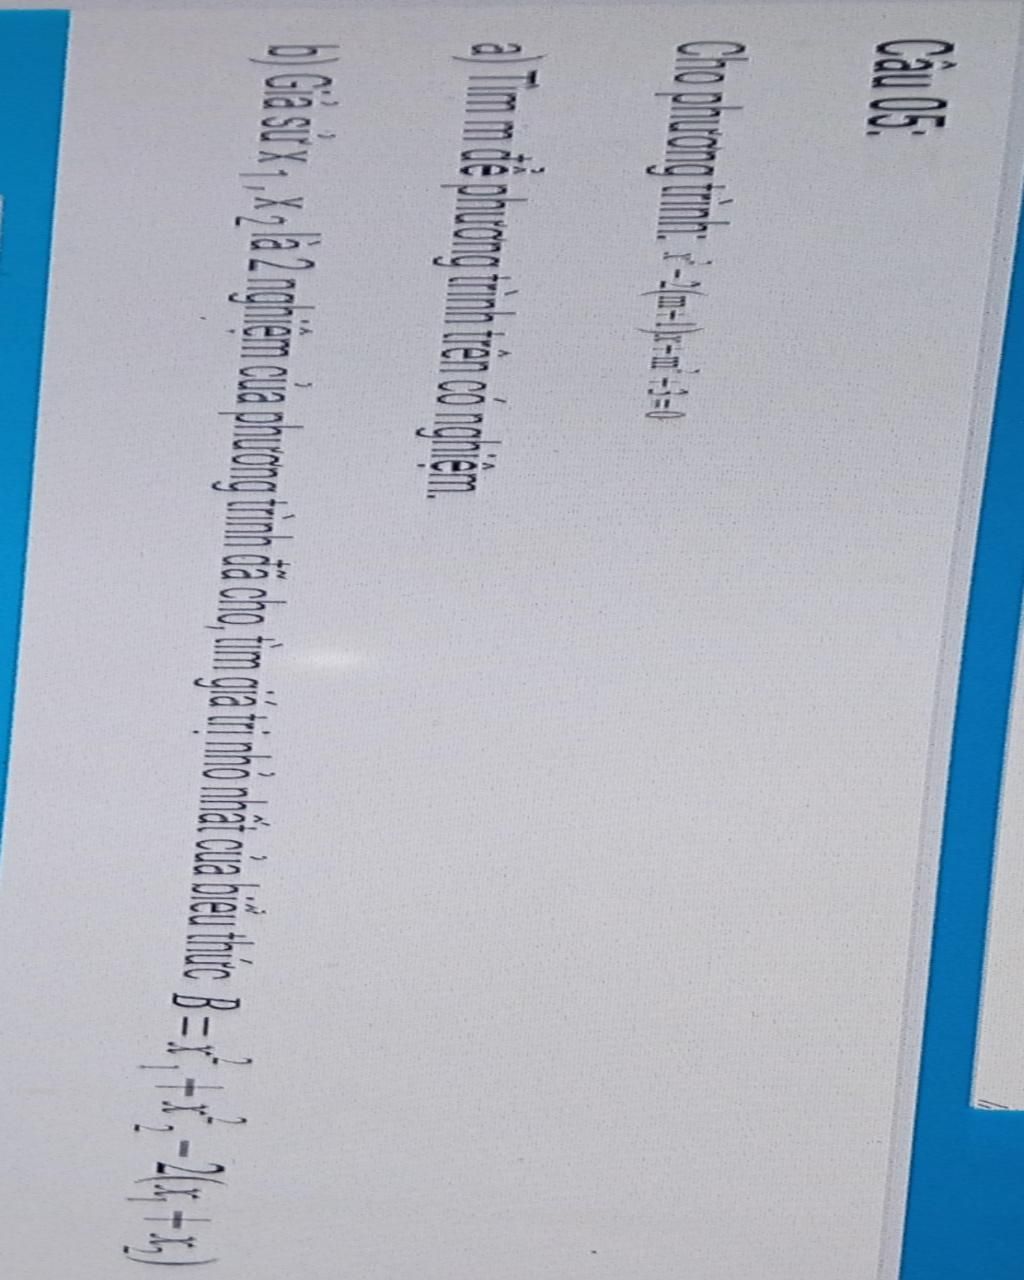 Câu 05:
Cho phương trình: x² – 2(m+1)x + m² + 3 = 0
a) Tìm m để phương trình trên có nghiệm.
b) Giả sử x₁, x₂ là 2 nghiệm của phương trình đã cho, tìm giá trị nhỏ nhất của biểu thức B = x₁² + x₂² – 2(x₁ + x₂)